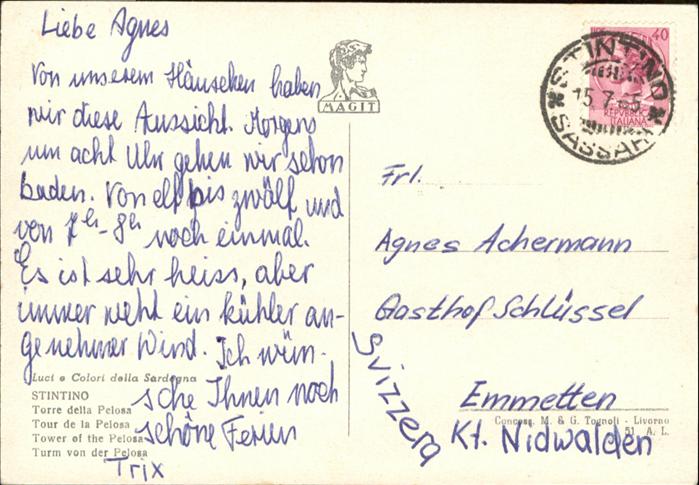 Liebe Agnes
Von unserem Häuschen haben
wir diese Aussicht. Morgens
um acht Uhr gehen wir schon
baden. Von elf bis zwölf und
von 7h - 8h noch einmal.
Es ist sehr heiss, aber
immer weht ein kühler an-
genehmer Wind. Ich wün-
sche Ihnen noch
schöne Ferien
Trix
Luci e Colori della Sardegna
STINTINO
Torre della Pelosa
Tour de la Pelosa
Tower of the Pelosa
Turm von der Pelosa
MAGIT
40
REPVBBLICA
ITALIANA
STINTINO
15.7.65
SASSARI
Frl.
Agnes Achermann
Gasthof Schlüssel
Emmetten
Kt. Nidwalden
Svizzera
Concess. M. & G. Tognoli - Livorno
51 A. L.